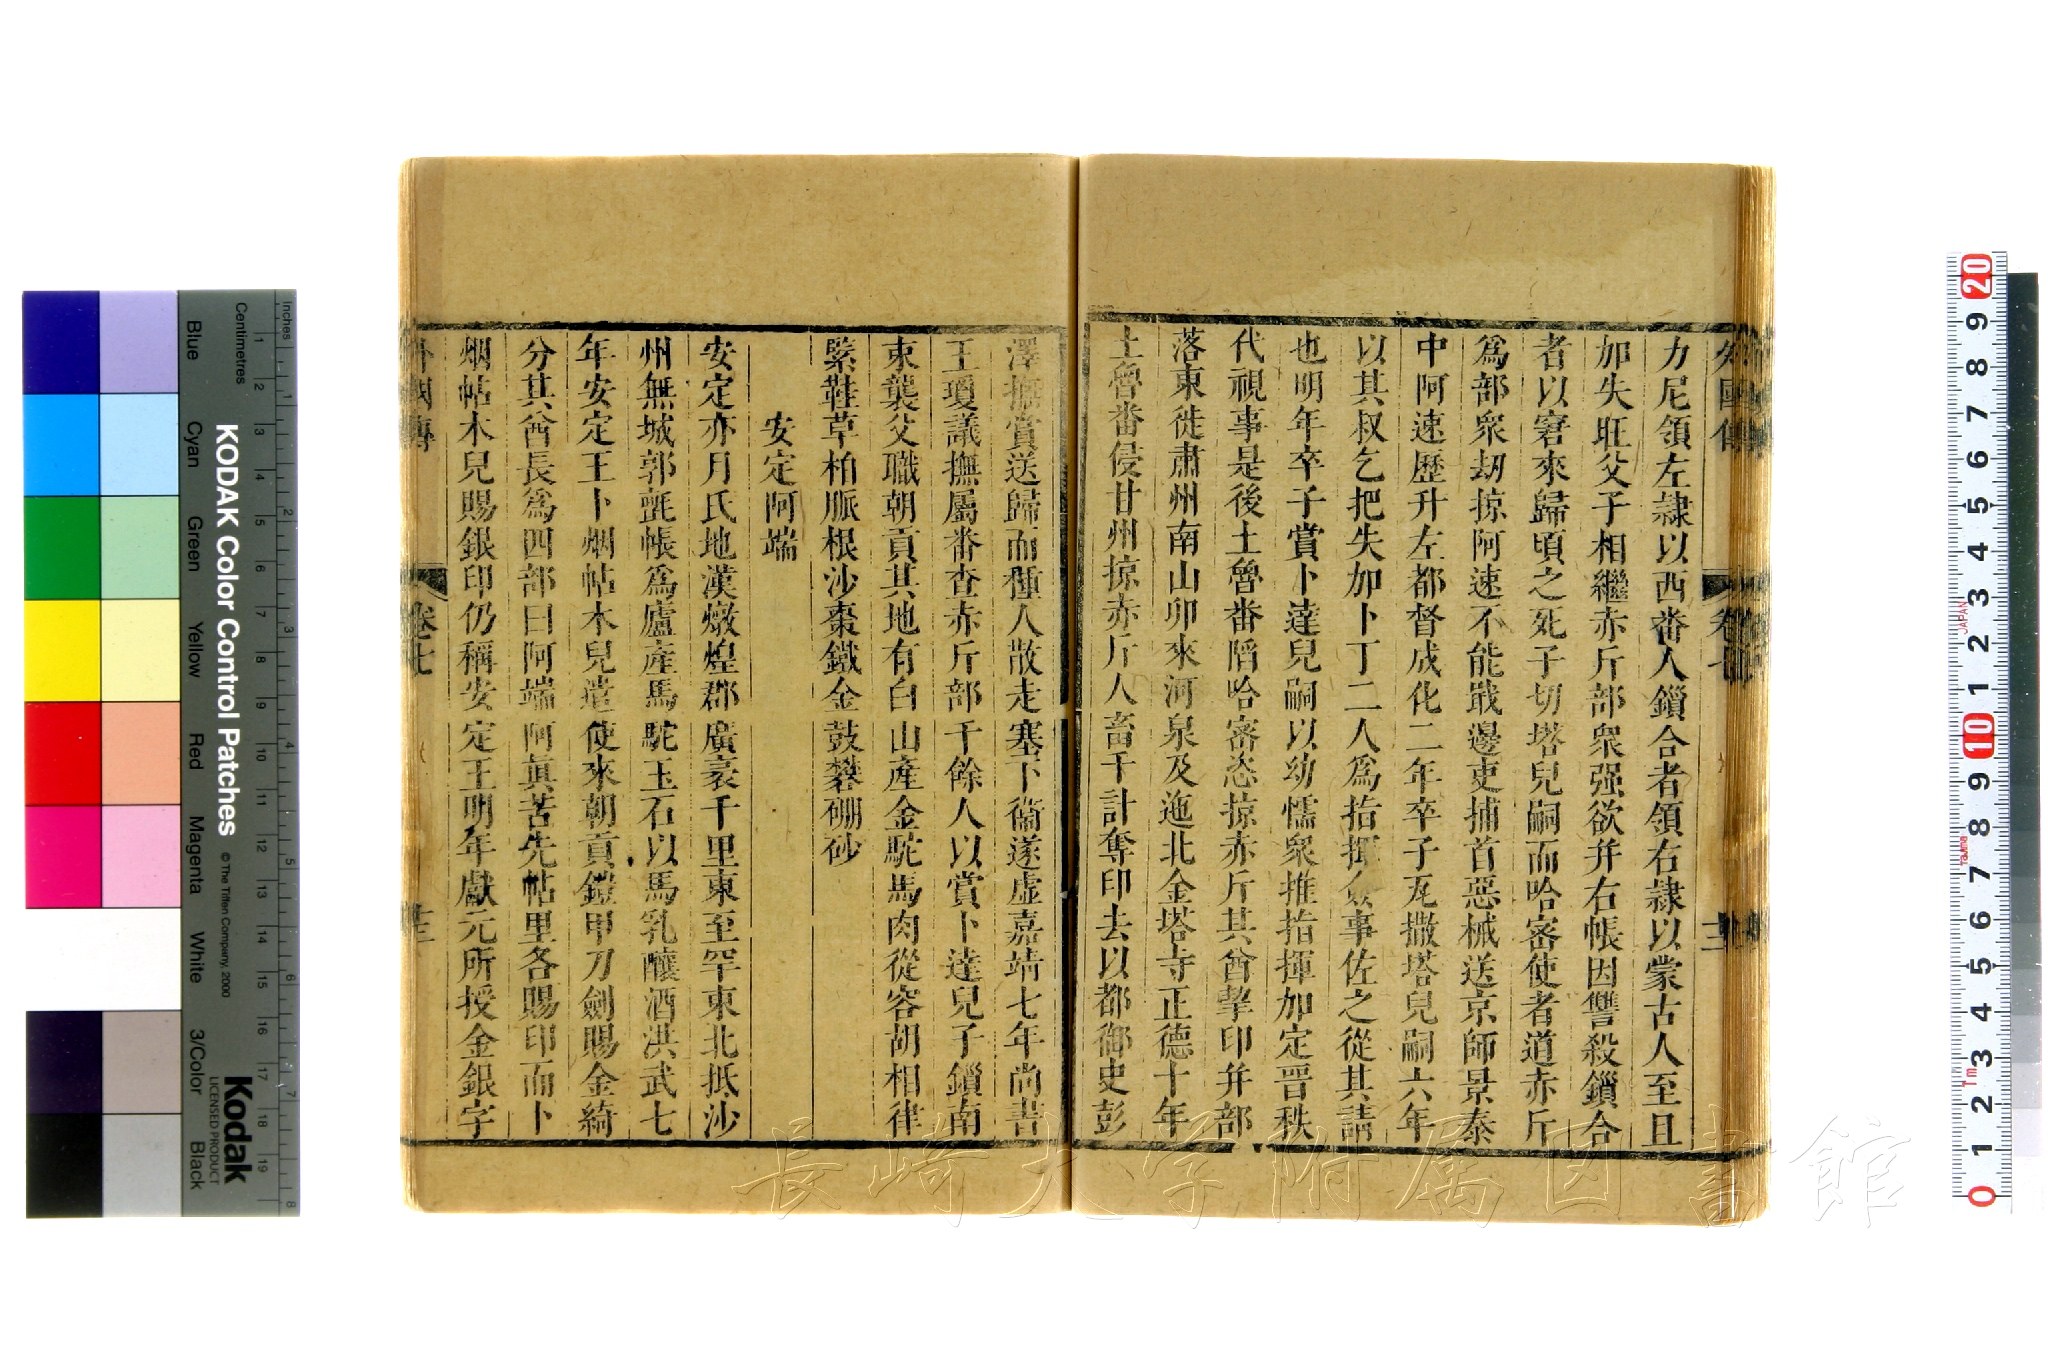 外國傳 卷七 十二
力尼領左隷以西番人鎖合者領右隷以蒙古人至且
加失旺父子相繼赤斤部衆强欲并右帳因讐殺鎖合
者以窘來歸頃之死子切塔兒嗣而哈密使者道赤斤
爲部衆刼掠阿速不能戢邊吏捕首惡械送京師景泰
中阿速歷升左都督成化二年卒子瓦撒塔兒嗣六年
以其叔乞把失加卜丁二人爲指揮僉事佐之從其請
也明年卒子賞卜達兒嗣以幼懦衆推指揮加定晋秩
代視事是後土魯番陷哈密恣掠赤斤其酋挈印并部
落東徙肅州南山卯來河泉及迤北金塔寺正德十年
土魯番侵甘州掠赤斤人畜千計奪印去以都御史彭
澤撫賞送歸而種人散走塞下衞遂虛嘉靖七年尚書
王瓊議撫屬番查赤斤部千餘人以賞卜達兒子鎖南
束襲父職朝貢其地有白山產金駝馬肉從容胡相律
緊鞋草柏脈根沙棗鐵金鼓礬硼砂
安定阿端
安定亦月氏地漢燉煌郡廣袤千里東至罕東北抵沙
州無城郭氈帳爲廬產馬駝玉石以馬乳釀酒洪武七
年安定王卜烟帖木兒遣使來朝貢鎧甲刀劍賜金綺
分其酋長爲四部曰阿端阿眞苦先帖里各賜印而卜
烟帖木兒賜銀印仍稱安定王明年獻元所授金銀字
外國傳 卷七 十三
KODAK Color Control Patches
© The Tiffen Company, 2000
Kodak
LICENSED PRODUCT
Inches
Centimetres
Blue Cyan Green Yellow Red Magenta White 3/Color Black
長崎大学附属図書館
JAPAN